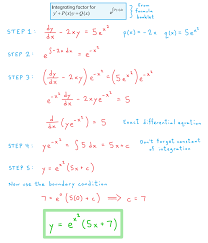 Integrating factor for
y' + P(x)y = Q(x)
e^∫P(x)dx
From
formula
booklet
STEP 1: dy/dx - 2xy = 5e^x² p(x) = -2x q(x) = 5e^x²
STEP 2: e^∫-2x dx = e^-x²
STEP 3: (dy/dx - 2xy) e^-x² = (5e^x²) e^-x²
e^-x² dy/dx - 2xye^-x² = 5
d/dx (ye^-x²) = 5 Exact differential equation
STEP 4: ye^-x² = ∫5 dx = 5x + c Don't forget constant
of integration
STEP 5: y = e^x² (5x + c)
Now use the boundary condition
7 = e^0 (5(0) + c) ⟹ c = 7
y = e^x² (5x + 7)